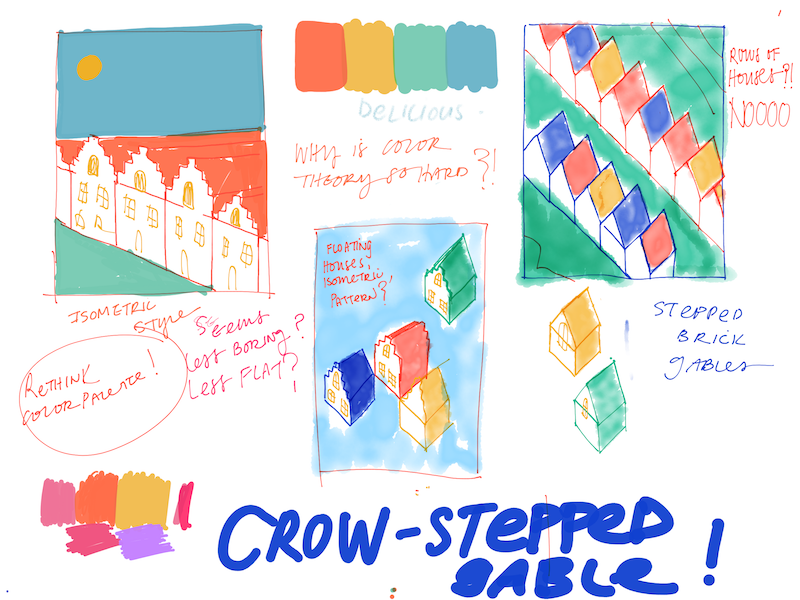 DELICIOUS.
WHY IS COLOR
THEORY SO HARD?!
ROWS OF
HOUSES?!
NOOOO
FLOATING
HOUSES,
ISOMETRIC
PATTERN?
ISOMETRIC
STYLE
SEEMS
LESS BORING?
LESS FLAT?!
RETHINK
COLOR PALETTE!
STEPPED
BRICK
GABLES
CROW-STEPPED
GABLE!